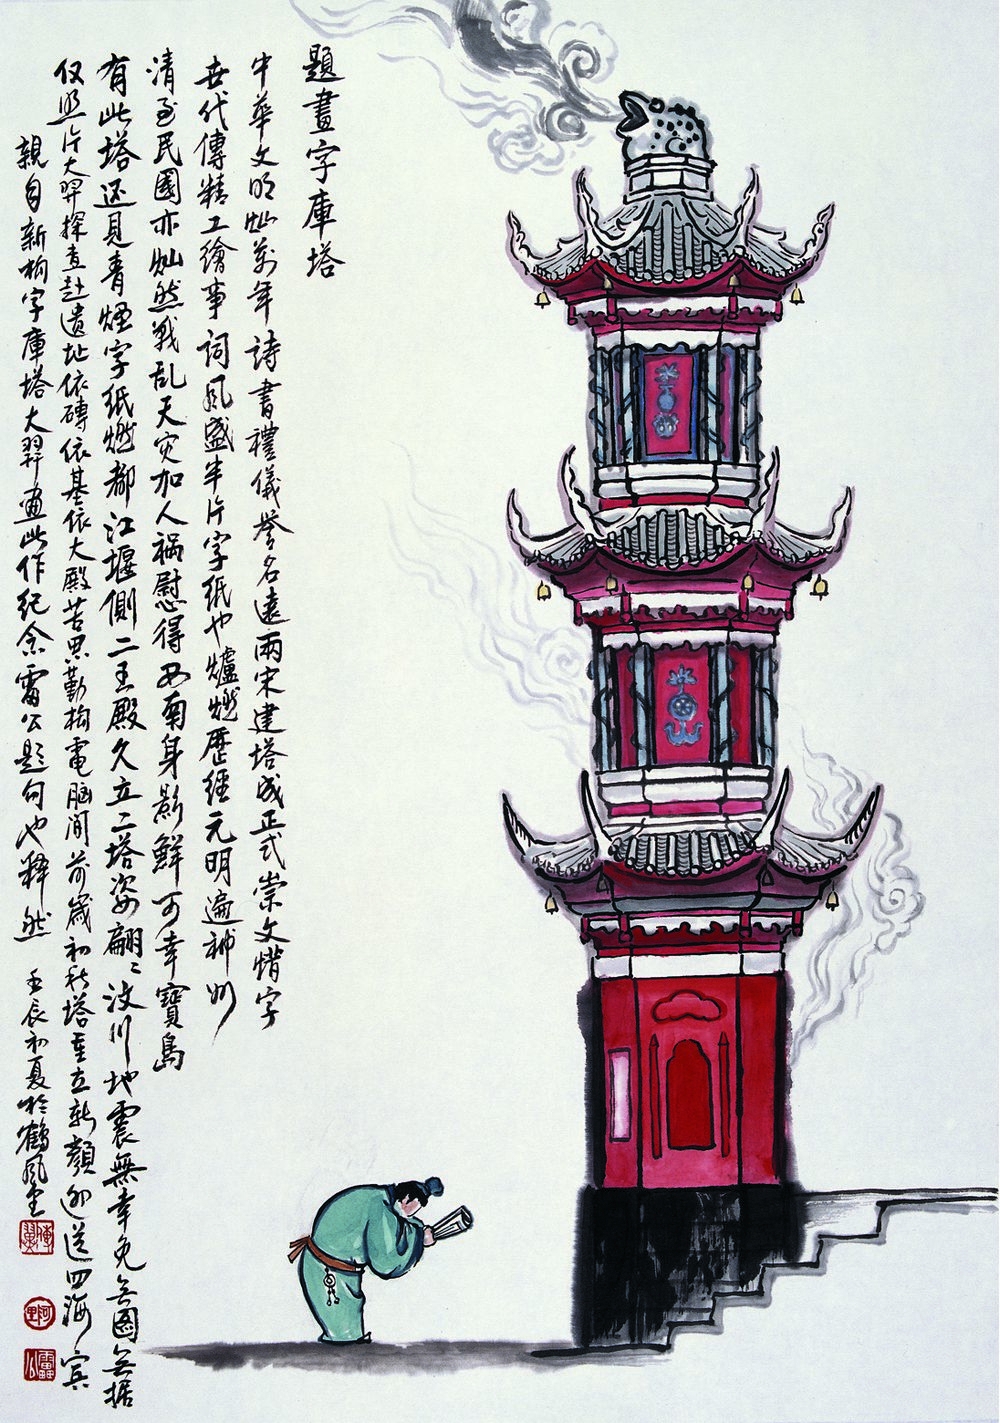 題畫字庫塔
中華文明灿萬年詩書禮儀譽名遠兩宋建塔成正式崇文惜字
世代傳精工繪事詞風盛半片字紙也爐燃歷經元明遍神州
清至民國亦灿然戰乱天灾加人祸慰得西南身影鮮可幸寶島
有此塔还見青煙字纸燃都江堰側二王殿久立二塔姿翩〻汶川地震無幸免无图无据
仅照片大羿探查赴遺址依磚依基依大殿苦思勤构電脑间前歲初秋塔重立新顏迎送四海宾
親自新构字庫塔大羿画此作纪念雷公题句也释然 壬辰初夏於鶴风堂